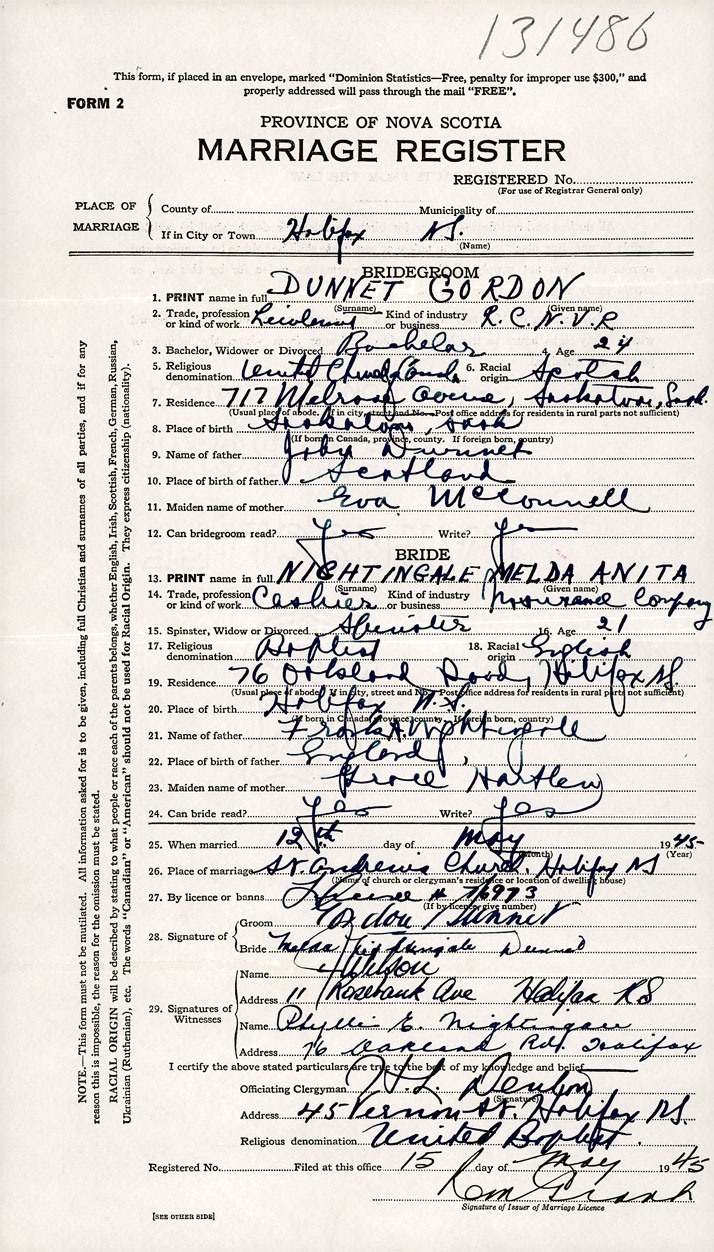 131486
This form, if placed in an envelope, marked "Dominion Statistics—Free, penalty for improper use $300," and
properly addressed will pass through the mail "FREE".
FORM 2
PROVINCE OF NOVA SCOTIA
MARRIAGE REGISTER
REGISTERED No.
(For use of Registrar General only)
PLACE OF MARRIAGE
County of Municipality of
If in City or Town Halifax N.S.
(Name)
BRIDEGROOM
1. PRINT name in full DUNNET GORDON
(Surname) (Given name)
2. Trade, profession or kind of work Lieutenant Kind of industry or business R.C.N.V.R
3. Bachelor, Widower or Divorced Bachelor 4. Age 24
5. Religious denomination United Church 6. Racial origin Scotch
7. Residence 717 Melrose Avenue, Saskatoon, Sask.
(Usual place of abode. If in city, street and No. Post office address for residents in rural parts not sufficient)
8. Place of birth Saskatoon, Sask
(If born in Canada, province, county. If foreign born, country)
9. Name of father Dunnet
10. Place of birth of father Scotland
11. Maiden name of mother Eva McConnell
12. Can bridegroom read? Yes Write? Yes
BRIDE
13. PRINT name in full NIGHTINGALE MELDA ANITA
(Surname) (Given name)
14. Trade, profession or kind of work Cashier Kind of industry or business Insurance Company
15. Spinster, Widow or Divorced Spinster 16. Age 21
17. Religious denomination Baptist 18. Racial origin English
19. Residence 76 Oakland Road, Halifax N.S.
(Usual place of abode. If in city, street and No. Post office address for residents in rural parts not sufficient)
20. Place of birth Halifax N.S.
(If born in Canada, province, county. If foreign born, country)
21. Name of father Frank A. Nightingale
22. Place of birth of father England
23. Maiden name of mother Grace Hartlen
24. Can bride read? Yes Write? Yes
25. When married 12th day of May 1945
(Month) (Year)
26. Place of marriage St. Andrew's Church, Halifax NS
(Name of church or clergyman's residence or location of dwelling house)
27. By licence or banns License # 76973
(If by licence give number)
28. Signature of
Groom Gordon Dunnet
Bride Melda Nightingale Dunnet
29. Signatures of Witnesses
Name Wilson
Address 11 Rosebank Ave Halifax NS
Name Phyllis E. Nightingale
Address 76 Oakland Rd. Halifax
I certify the above stated particulars are true to the best of my knowledge and belief.
Officiating Clergyman H. L. Denton
(Signature)
Address 45 Vernon St. Halifax NS.
Religious denomination United Baptist.
Registered No. Filed at this office 15 day of May 1945
Signature of Issuer of Marriage Licence
[SEE OTHER SIDE]
NOTE.—This form must not be mutilated. All information asked for is to be given, including full Christian and surnames of all parties, and if for any
reason this is impossible, the reason for the omission must be stated.
RACIAL ORIGIN will be described by stating to what people or race each of the parents belongs, whether English, Irish, Scottish, French, German, Russian,
Ukrainian (Ruthenian), etc. The words "Canadian" or "American" should not be used for Racial Origin. They express citizenship (nationality).